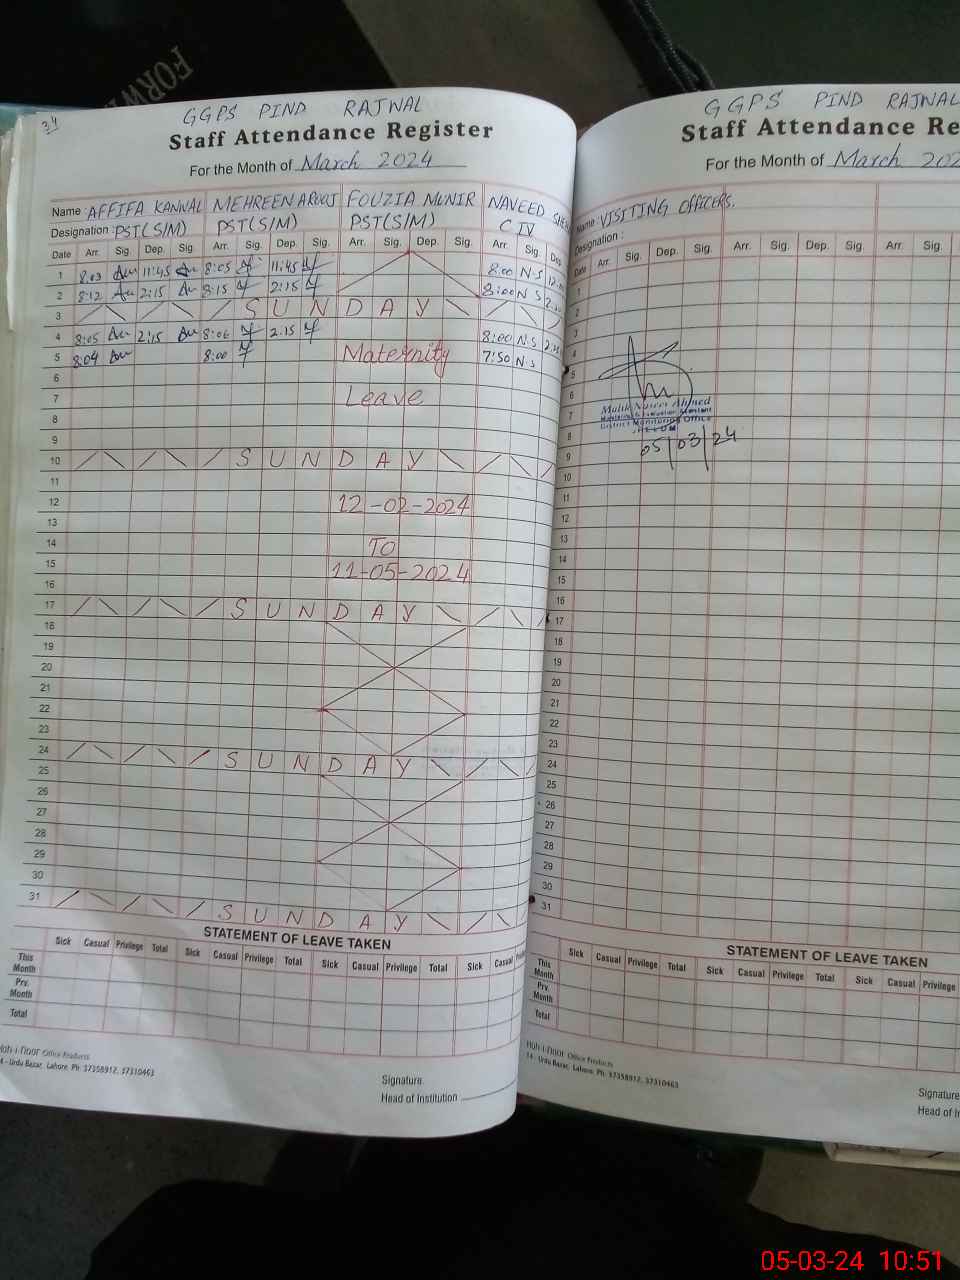 FORW
34
GGPS PIND RAJWAL
Staff Attendance Register
For the Month of March 2024
Name: AFFIFA KANWAL MEHREEN AROOJ FOUZIA MUNIR NAVEED
Designation: PST(S/M) PST(S/M) PST(S/M) C IV
Date Arr. Sig. Dep. Sig. Arr. Sig. Dep. Sig. Arr. Sig. Dep. Sig. Arr. Sig. Dep.
1 8:03 11:45 8:05 11:45 8:00 N-S
2 8:12 2:15 8:15 2:15 8:00 N S
3 S U N D A Y
4 8:05 2:15 8:06 2:15 8:00 N.S
5 8:04 8:00 Maternity 7:50 N.S
6
7 Leave
8
9
10 S U N D A Y
11
12 12-02-2024
13
14 TO
15 11-05-2024
16
17 S U N D A Y
18
19
20
21
22
23
24 S U N D A Y
25
26
27
28
29
30
31 S U N D A Y
STATEMENT OF LEAVE TAKEN
Sick Casual Privilege Total Sick Casual Privilege Total Sick Casual Privilege Total Sick Casual
This Month
Prv. Month
Total
Office Products
4 - Urdu Bazar, Lahore. Ph: 37358912, 37310463
Signature
Head of Institution
GGPS PIND RAJWAL
Staff Attendance Re
For the Month of March 202
Name: VISITING OFFICERS.
Designation:
Date Arr. Sig. Dep. Sig. Arr. Sig. Dep. Sig. Arr. Sig.
1
2
3
4
5
6
7
8
9
10
11
12
13
14
15
16
17
18
19
20
21
22
23
24
25
26
27
28
29
30
31
Malik Naseer Ahmed
Monitoring & Evaluation Assistant
District Monitoring Office
JHELUM
05/03/24
STATEMENT OF LEAVE TAKEN
Sick Casual Privilege Total Sick Casual Privilege Total Sick Casual Privilege
This Month
Prv. Month
Total
Office Products
14 - Urdu Bazar, Lahore. Ph: 37358912, 37310463
Signature
Head of In
05-03-24 10:51